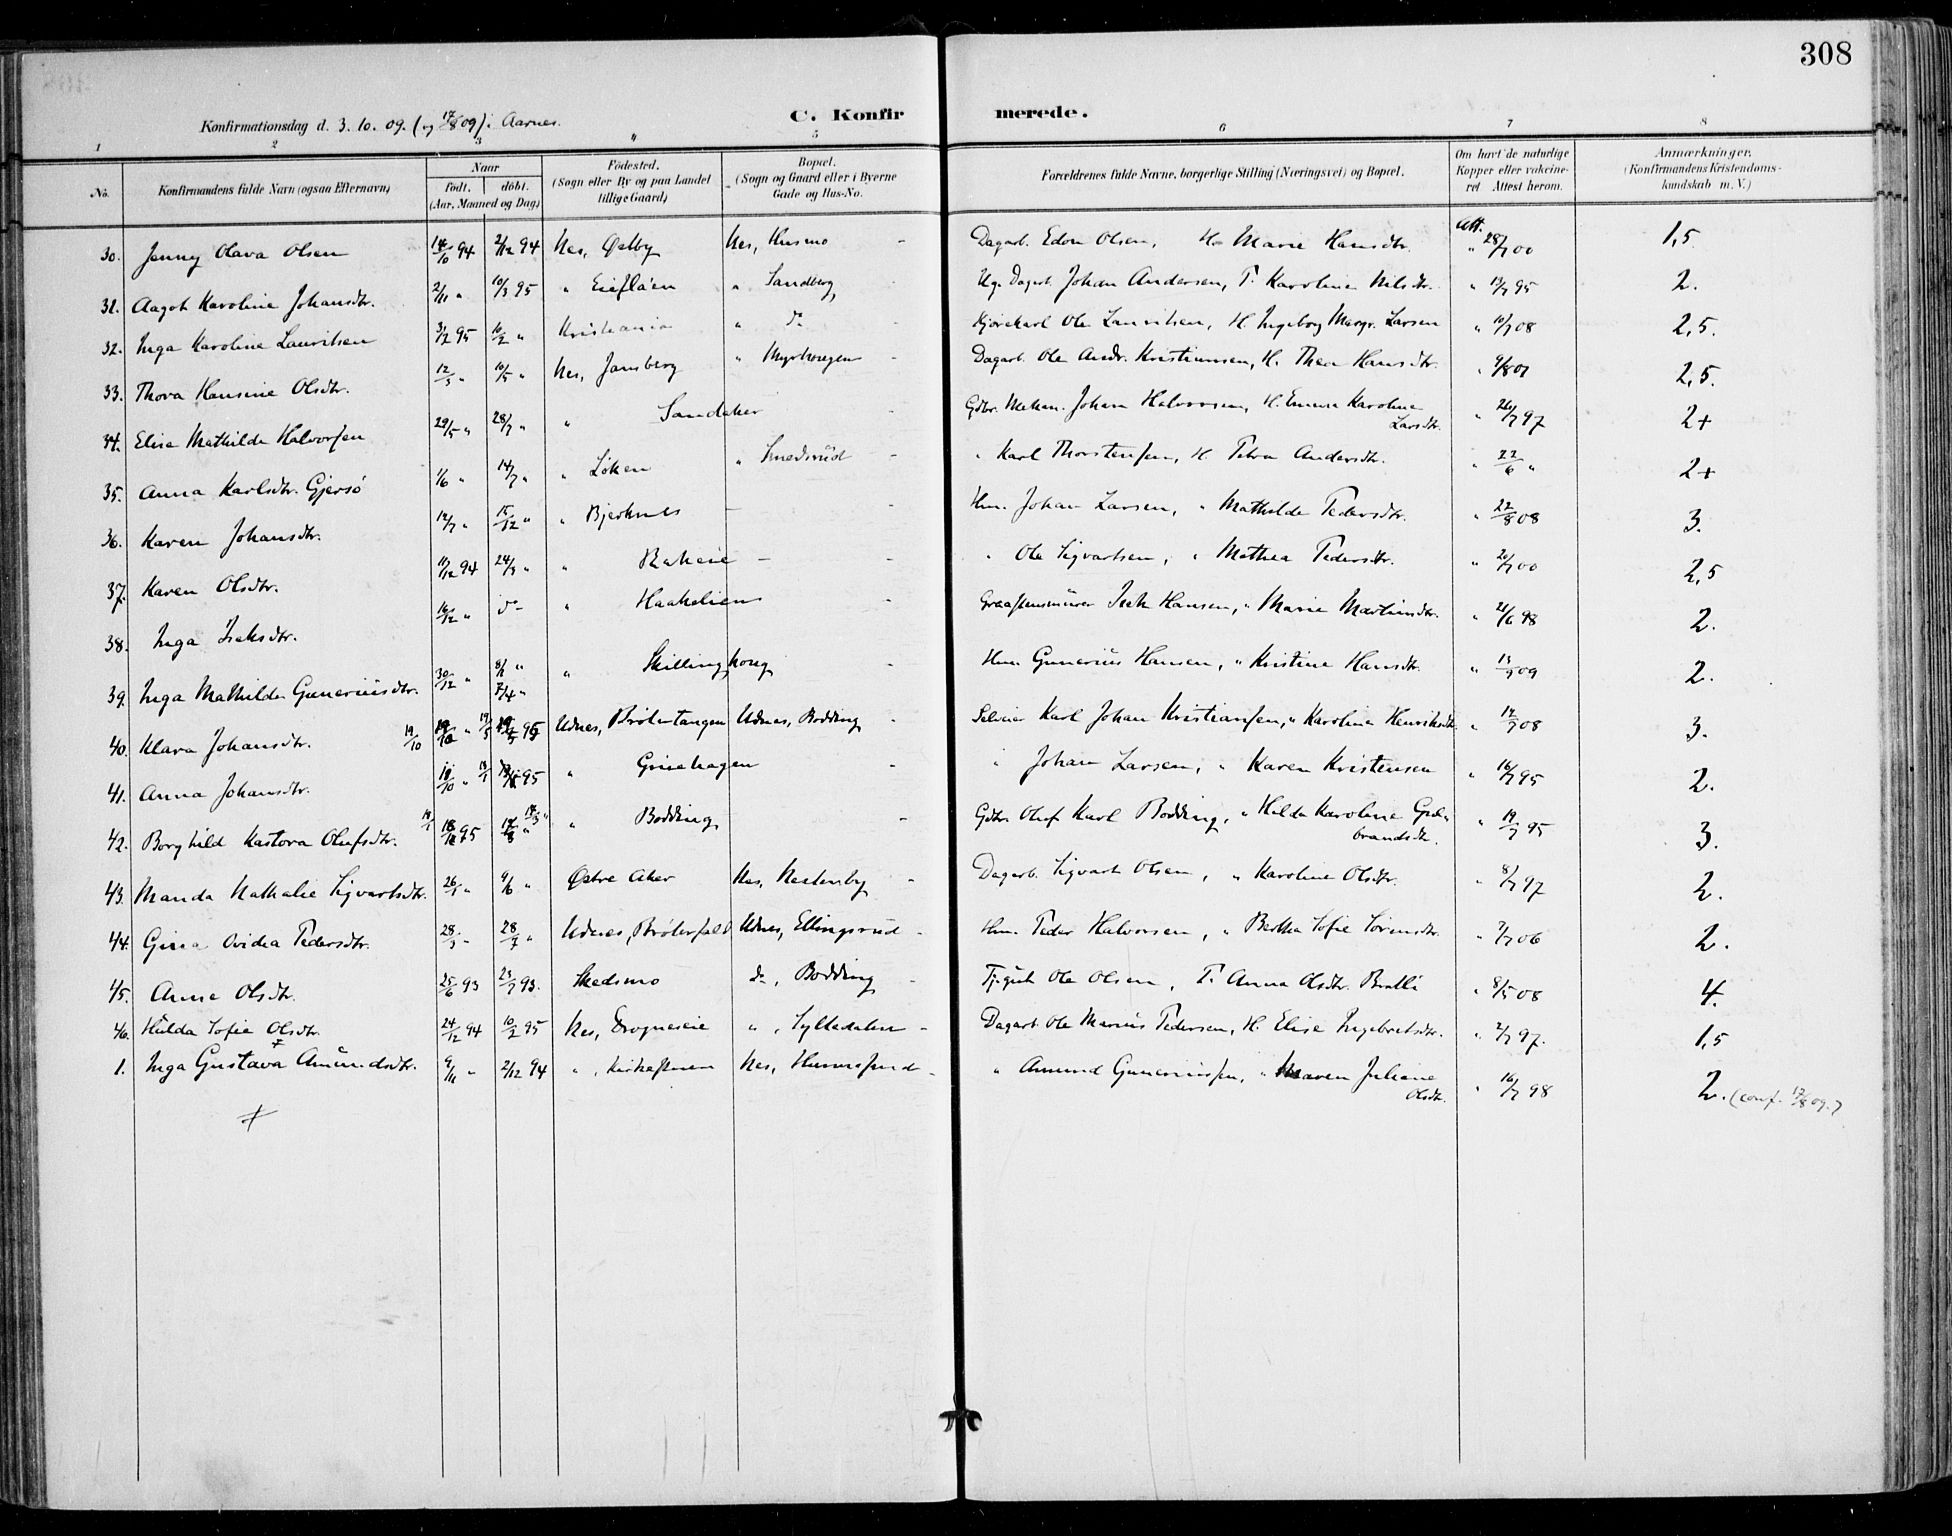 308
C. Konfirmerede.
Konfirmationsdag d. 3. 10. 09. (og 17/8 09) i Aarnes.
1 2 3 4 5 6 7 8
No. Konfirmandens fulde Navn (ogsaa Efternavn) Naar födt. döbt. (Aar, Maaned og Dag) Födested. (Sogn eller By og paa Landet tillige Gaard) Bopæl. (Sogn og Gaard eller i Byerne Gade og Hus-No. Forældrenes fulde Navne, borgerlige Stilling (Næringsvei) og Bopæl. Om havt de naturlige Kopper eller vakcineret Attest herom. Anmærkninger. (Konfirmandens Kristendomskundskab m. V.)
30. Jenny Olava Olsen 14/10 94 2/12 94 Nes, Østby Nes, Husmo - Dagarb. Edon Olsen, H. Marie Hansdtr. Att. " 28/7 00 1,5
31. Aagot Karoline Johansdtr. 2/11 " 10/3 95 " Eiefloen " Sandberg Ug. Dagarb. Johan Andersen, P. Karoline Nilsdtr. " 19/7 95 2.
32. Inga Karoline Lauritsen 3/2 95 16/2 " Kristiania " do Kjörekarl Ole Lauritsen, H. Ingeborg Margr. Larsen " 10/7 08 2,5.
33. Thora Hansine Olsdtr. 12/3 " 10/5 " Nes, Jansberg " Myrhaugen - Dagarb. Ole Andr. Kristiansen, H. Thea Hansdtr. " 9/8 07 2,5.
34. Elise Mathilde Halvorsen 29/5 " 28/7 " " Sandaker - Gdbr. Mekan. Johan Halvorsen, H. Emma Karoline Larsdtr. " 26/7 97 2+
35. Anna Karlsdtr. Gjersö 1/6 " 14/7 " " Löken " Smedsrud - " Karl Thorstensen, H. Petra Andersdtr. " 22/6 " 2+
36. Karen Johansdtr. 12/7 " 15/12 " " Bjerknes - Hm. Johan Larsen, " Mathilde Pedersdtr. " 22/8 08 3.
37. Karen Olsdtr. 11/12 94 24/3 " " Rakeie - " Ole Sigvartsen, " Mathea Pedersdtr. " 20/7 00 2,5
38. Inga Isaksdtr. 16/12 " do " Haakelien - Graastensmurer Isak Hansen, " Marie Martinsdtr. " 21/6 98 2.
39. Inga Mathilde Gunneriusdtr. 30/12 " 8/1 " 7/4 " " Skillinghaug - Hm. Gunerius Hansen, " Kristine Hansdtr. " 13/9 09 2.
40. Klara Johansdtr. 19/10 " 19/5 95 Udnes, Bröttertangen Udnes, Bodding - Selveier Karl Johan Kristiansen, " Karoline Henriksdtr. " 14/9 08 3.
41. Anna Johansdtr. 19/10 " 95 " Grinehagen " Johan Larsen, " Karen Kristensen " 16/7 95 2.
42. Borghild Kastora Olufsdtr. 95 17/3 " " Bodding - Gdbr. Oluf Karl Bodding, " Hilda Karoline Gulbrandsdtr. " 19/7 95 3.
43. Manda Nathalie Sigvartsdtr. 26/1 " 9/6 " Østre Aker Nes, Nestenby - Dagarb. Sigvart Olsen, " Karoline Olsdtr. " 8/7 97 2.
44. Gina Ovidia Pedersdtr. 28/3 " 28/7 " Udnes, Bröterfald Udnes, Ellingsrud - Hm. Peder Halvorsen, " Bertha Sofie Sörensdtr. " 7/7 06 2.
45. Anne Olsdtr. 25/6 93 23/7 93. Skedsmo do, Bodding - Tj.gut Ole Olsen, P. Anna Olsdtr. Bratli " 8/5 08 4.
46. Hilda Sofie Olsdtr. 24/12 94 10/2 95 Nes, Drogneseie ", Sylledalen - Dagarb. Ole Marius Pedersen, H. Elise Ingebretsdtr. " 2/7 97. 1,5
1. Inga Gustava Amundsdtr. 9/11 " 2/12 94 ", Kirkestuen Nes, Hunnsfund - " Amund Gunneriussen, " Maren Juliane Olsdtr. " 16/7 98 2. (conf. 17/8 09.)